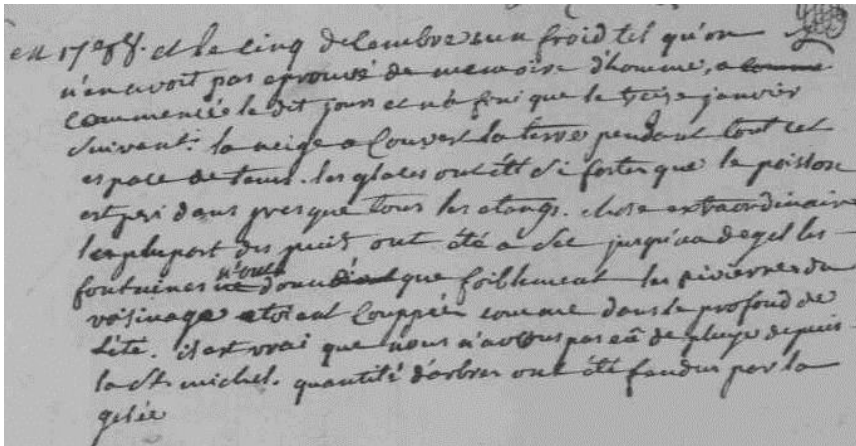 en 1788. et le cinq decembre un froid tel qu'on
n'en avoit pas eprouvé de memoire d'homme, a comme
commencée le dit jours et n'a fini que le treise janvier
suivant. la neige a couvert la terre pendant tout cet
espace de tems. les glaces ont été si fortes que le poisson
est peri dans presque tous les etangs. chose extraordinaire
les plupart des puits ont été a sec jusqu'au degel les
fontaines n'ont donné que foiblement les rivierres du
voisinage etoient couppées comme dans le profond de
l'été. il est vrai que nous n'avons pas eû de pluye depuis
la St. michel. quantité d'arbres ont été fandus par la
gelée